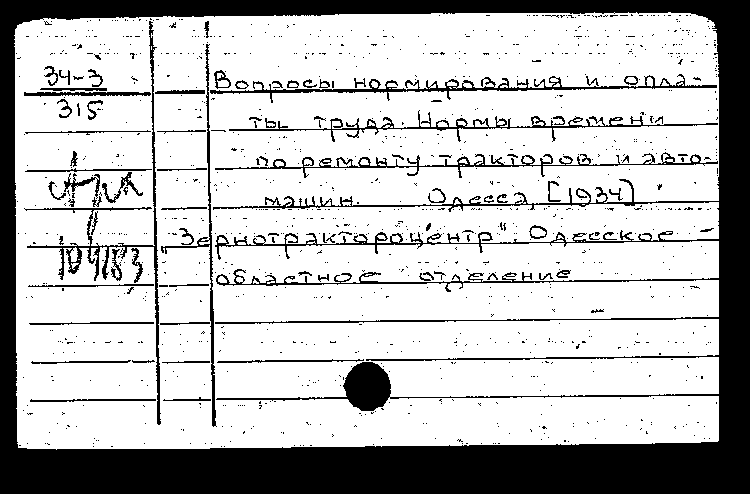 34-3
315
Вопросы нормирования и опла-
ты труда. Нормы времени
по ремонту тракторов и авто-
машин. Одесса, [1934]
„Зернотрактороцентр". Одесское -
областное отделение